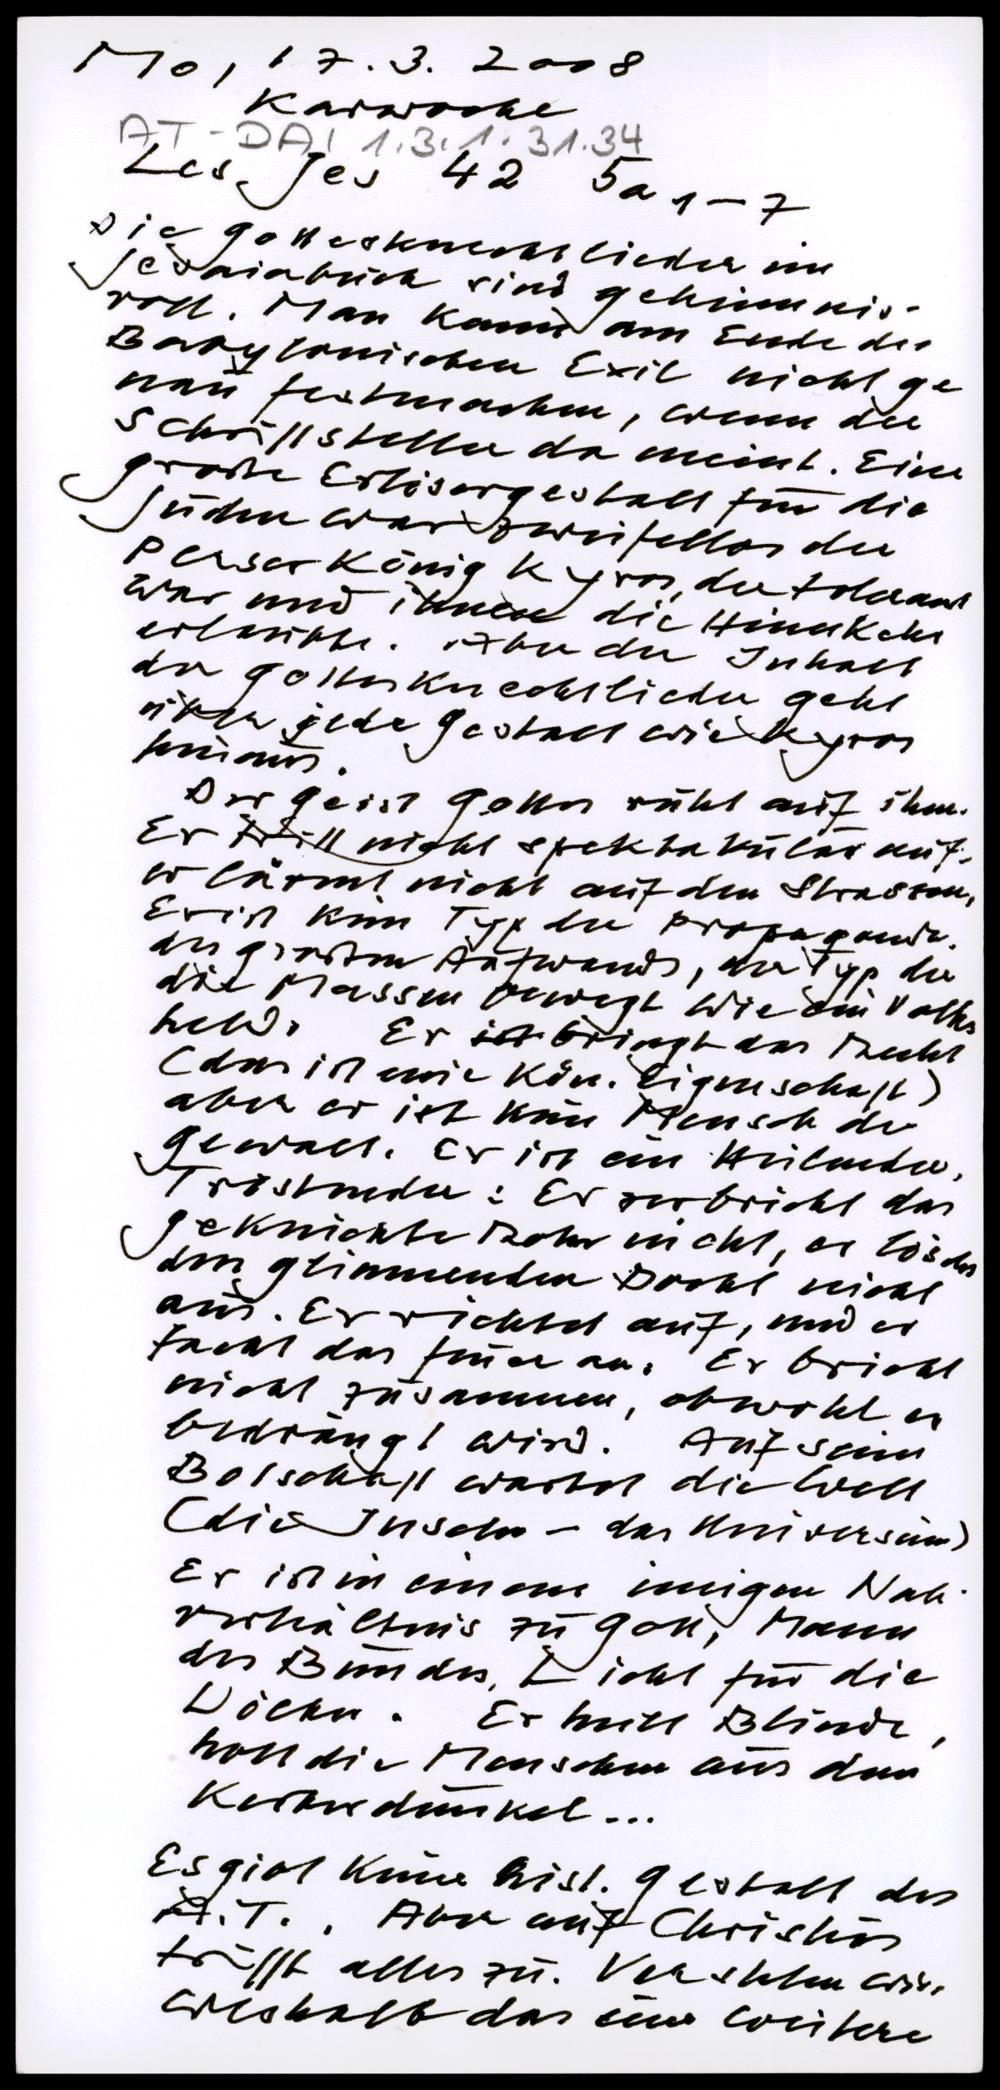 Mo, 17.3.2008
Karwoche
AT-DAI 1.3.1.31.34
Les Jes 42 5a 1-7
Die Gottesknechtslieder im
Jesaiabuch sind geheimnis-
voll. Man kann am Ende des
Babylonischen Exil nicht ge
nau festmachen, wenn der
Schriftsteller da meint. Eine
große Erlösergestalt für die
Juden war zweifellos der
Perserkönig Kyros, der tolerant
war und ihnen die Heimkehr
erlaubte. Aber der Inhalt
der Gottesknechtslieder geht
über jede Gestalt wie Kyros
hinaus.
Der Geist Gottes ruht auf ihm.
Er tritt nicht spektakulär auf,
er lärmt nicht auf den Strassen,
Er ist kein Typ der Propaganda,
des großen Aufwands, der Typ der
die Massen bewegt wie ein Volks
held. Er ist bringt das Recht
(das ist eine kön. Eigenschaft)
aber er ist kein Mensch der
Gewalt. Er ist ein Heilender,
Tröstender: Er zerbricht das
geknickte Rohr nicht, er löscht
den glimmenden Docht nicht
aus. Er richtet auf, und er
facht das Feuer an. Er bricht
nicht zusammen, obwohl er
bedrängt wird. Auf seine
Botschaft wartet die Welt
(die Inseln - das Universum)
Er ist in einem innigen Nah-
verhältnis zu Gott, Mann
des Bundes, Licht für die
Völker. Er heilt Blinde,
holt die Menschen aus dem
Kerkerdunkel...
Es gibt keine hist. Gestalt des
A.T.. Aber auf Christus
trifft alles zu. Verstehen wir,
weshalb das eine weitere